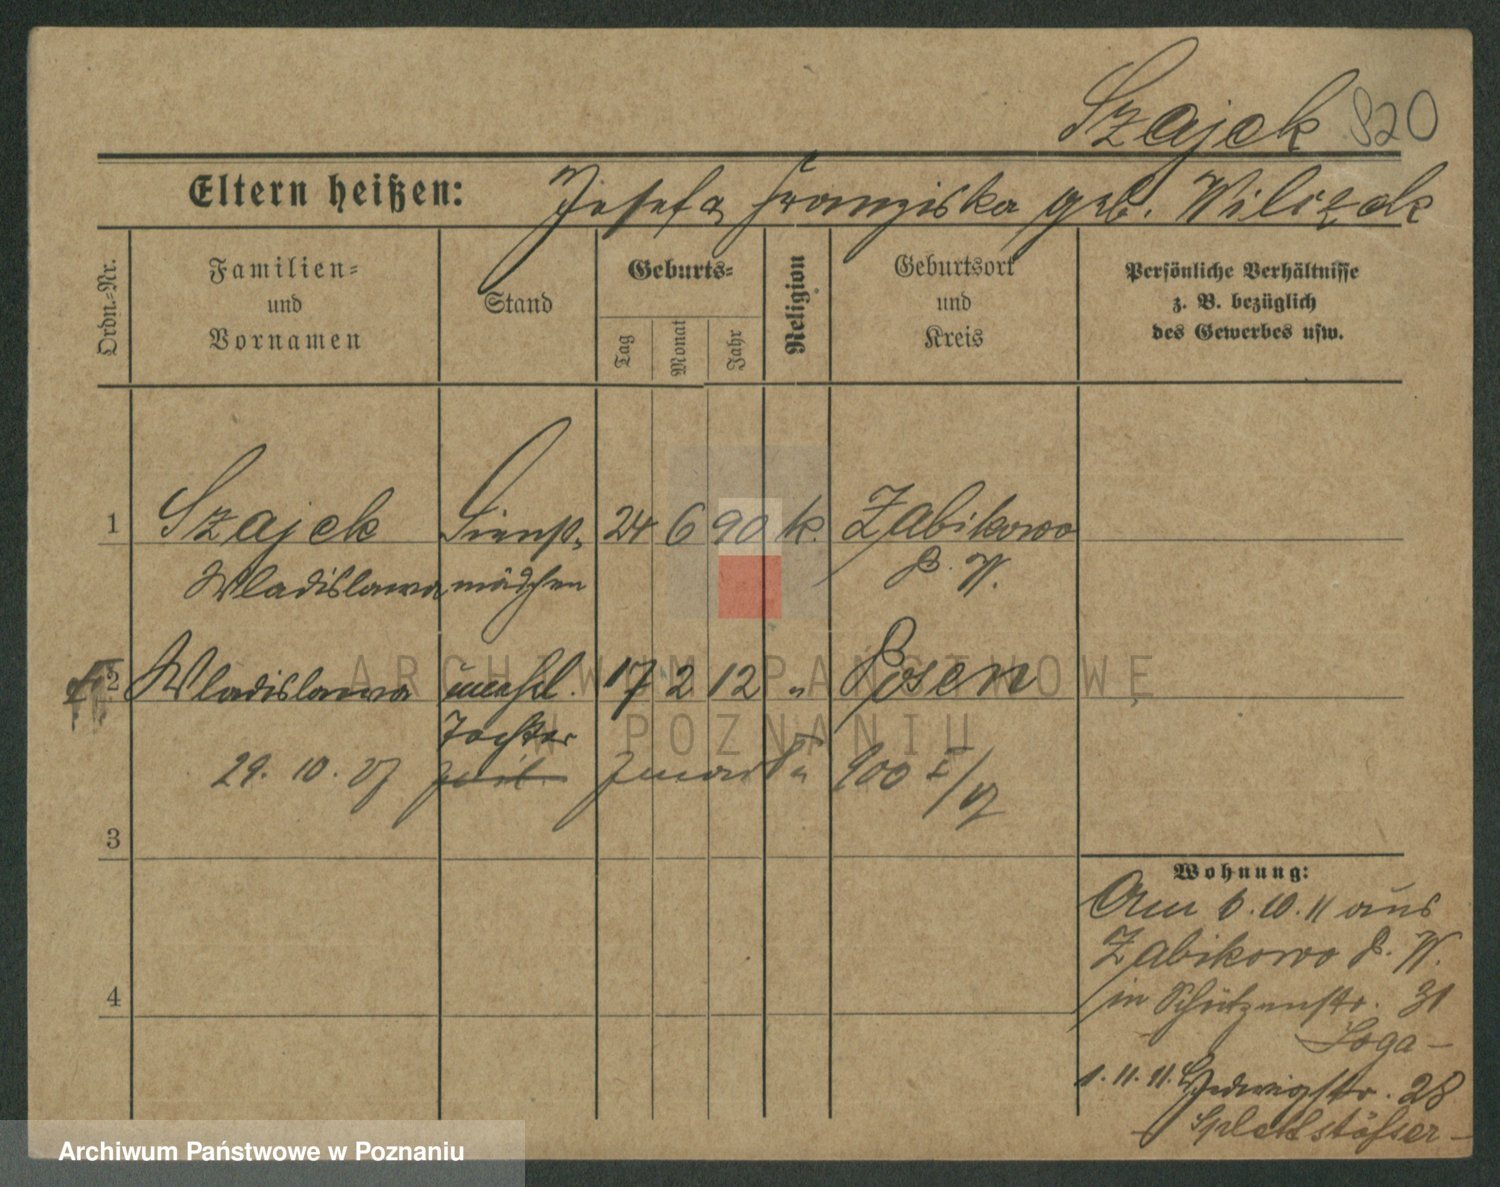 Szajek 820
Eltern heißen: Josefa Franziska geb. Wilczak
Ordn.-Nr.
Familien-
und
Vornamen
Stand
Geburts-
Tag
Monat
Jahr
Religion
Geburtsort
und
Kreis
Persönliche Verhältnisse
z. B. bezüglich
des Gewerbes usw.
1 Szajek Dienst- 24 6 90 k. Zabikowo
Wladislawa mädchen P. W.
2 Wladislawa unehl. 17 2 12 " Posen
Tochter
29. 10. 07 900 I/07
3
Wohnung:
Am 6. 10. 11 aus
Zabikowo P. W.
in Schützenstr. 31
4
Loga -
1. 11. 11. Hedwigstr. 28
ARCHIWUM PAŃSTWOWE
W POZNANIU
Archiwum Państwowe w Poznaniu